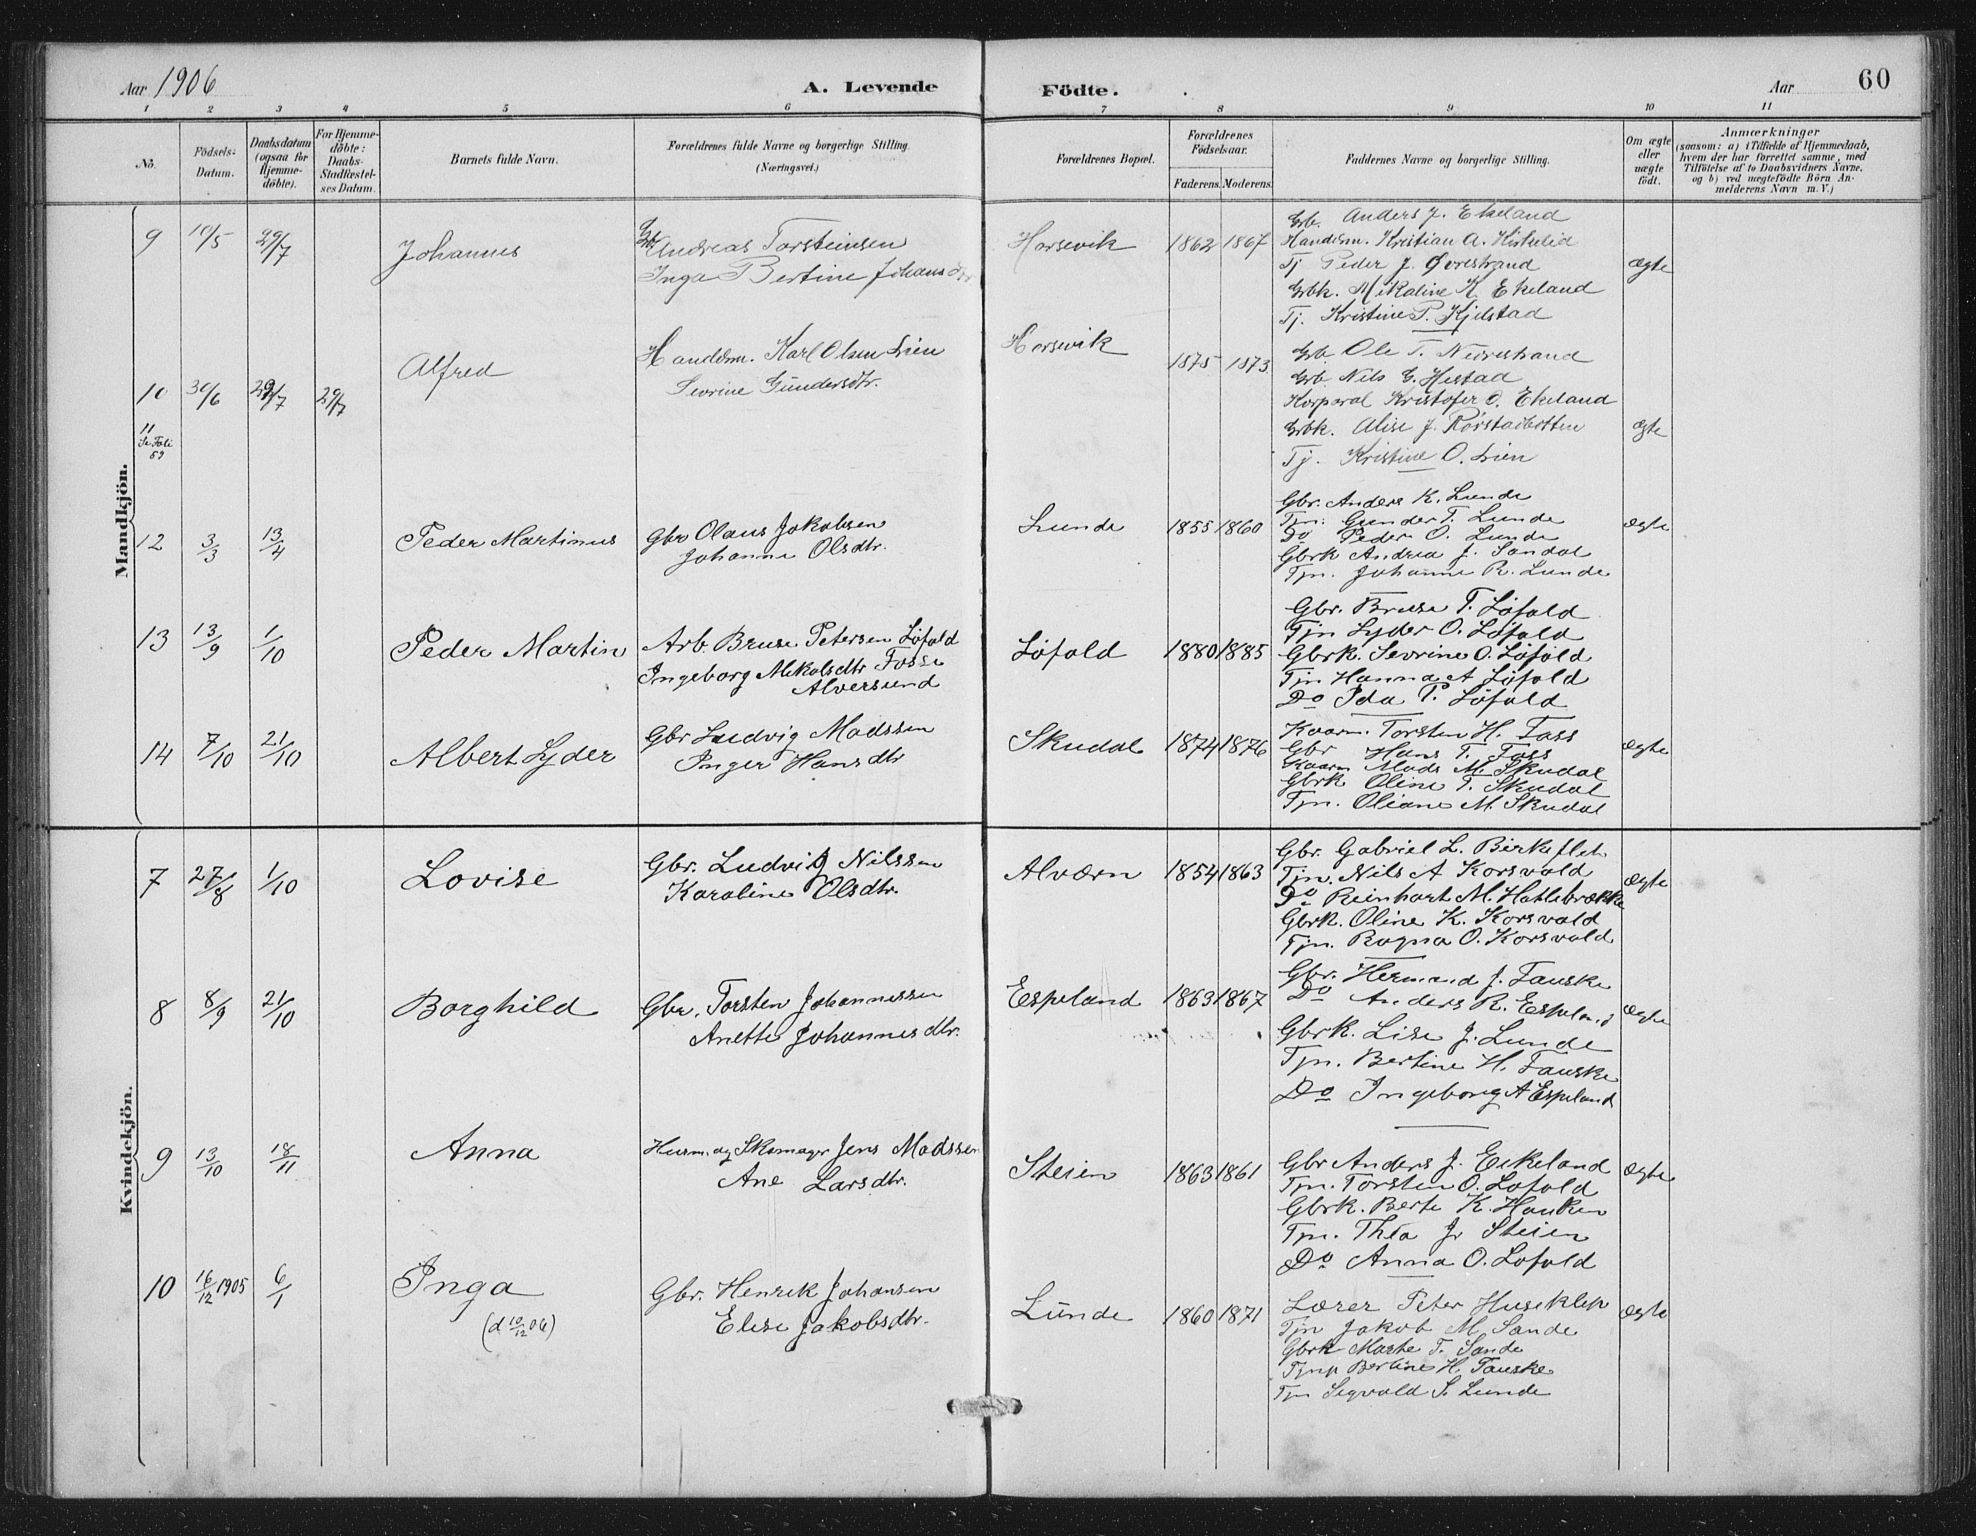 Aar 1906
A. Levende Födte.
Aar
60
1 2 3 4 5 6 7 8 9 10 11
No.
Födsels-Datum.
Daabsdatum (ogsaa for Hjemme-döbte).
For Hjemme-döbte: Daabs-Stadfæstel-ses Datum.
Barnets fulde Navn.
Forældrenes fulde Navne og borgerlige Stilling. (Næringsvei.)
Forældrenes Bopæl.
Forældrenes Födselsaar.
Faderens. Moderens.
Faddernes Navne og borgerlige Stilling.
Om ægte eller uægte födt.
Anmærkninger
(saasom: a) i Tilfælde af Hjemmedaab, hvem der har forrettet samme, med Tilföielse af to Daabsvidners Navne, og b) ved uægtefödte Börn An-melderens Navn m. V.)
Mandkjön.
9 10/5 29/7 Johannes
Gbr. Andreas Torsteinsen
Inga Bertine Johansdtr
Horsevik 1862 1867
Grb. Anders J. Ekeland
Handelsm. Kristian A. Hiskelid
Tj. Peder J. Øvrestrand
Grbk. Mikaline K. Ekeland
Tj. Kristine P. Kjelstad
ægte
10 30/6 29/7 29/7 Alfred
Handelsm. Karl Olsen Lien
Sevrine Gundersdtr.
Horsevik 1875 1873
Grb. Ole T. Nedrestrand
Grb. Nils G. Hestad
Korporal Kristofer O. Ekeland
Grbk. Alise J. Rørstadbotten
Tj. Kristine O. Lien
ægte
11
Se Foli
59
12 3/3 13/4 Peder Martinus
Gbr Olaus Jakobsen
Johanne Olsdtr.
Lunde 1855 1860
Gbr. Anders K. Lunde
Tjn: Gunder T. Lunde
Do Peder O. Lunde
Gbrk Andrea J. Sandal
Tjn. Johanne R. Lunde
ægte
13 13/9 1/10 Peder Martin
Arb. Bruse Petersen Löfald
Ingeborg Mikalsdtr Fosse
Alversund
Löfald 1880 1885
Gbr. Bruse T. Löfald
Tjn Lyder O. Löfald
Gbrk. Sevrine O. Löfold
Tjn Hanna A Löfald
Do Ida P. Löfald
14 7/10 21/10 Albert Lyder
Gbr Ludvig Madssen
Inger Hansdtr
Skudal 1874 1876
Kaarm. Torsten H. Fass
Gbr Hans T. Fass
Kaarm Mads M. Skudal
Gbrk Oline T. Skudal
Tjn. Oliane M. Skudal
ægte
Kvindekjön.
7 27/8 1/10 Lovise
Gbr. Ludvig Nilssen
Karoline Olsdtr.
Alværn 1854 1863
Gbr. Gabriel L. Birkeflet
Tjn. Nils A Korsvald
Do Reinhart M. Hatlebrække
Gbrk. Oline K. Korsvald
Tjn. Ragna O. Korsvald
ægte
8 8/9 21/10 Borghild
Gbr. Torsten Johannessen
Anette Johannesdtr.
Espeland 1863 1867
Gbr. Hermand J. Fauske
Do Anders R. Espeland
Gbrk. Lise J. Lunde
Tjn. Bertine H. Fauske
Do Ingeborg A Espeland
ægte
9 13/10 18/11 Anna
Husm. og Skomager Jens Madssen
Ane Larsdtr.
Steien 1863 1861
Gbr Anders J. Eikeland
Tjn. Torsten O. Lofald
Gbrk. Berte K. Hauken
Tjn. Thea J. Steien
Do Anna O. Lofald
ægte
10 16/12 1905 6/1 Inga
(d 10/12 06)
Gbr. Henrik Johansen
Elise Jakobsdtr.
Lunde 1860 1871
Lærer Peter Huseklep
Tjn Jakob M. Sande
Gbrk Marte T. Sande
Tjnp Bertine H. Fauske
Tjn Segvald S. Lunde
ægte